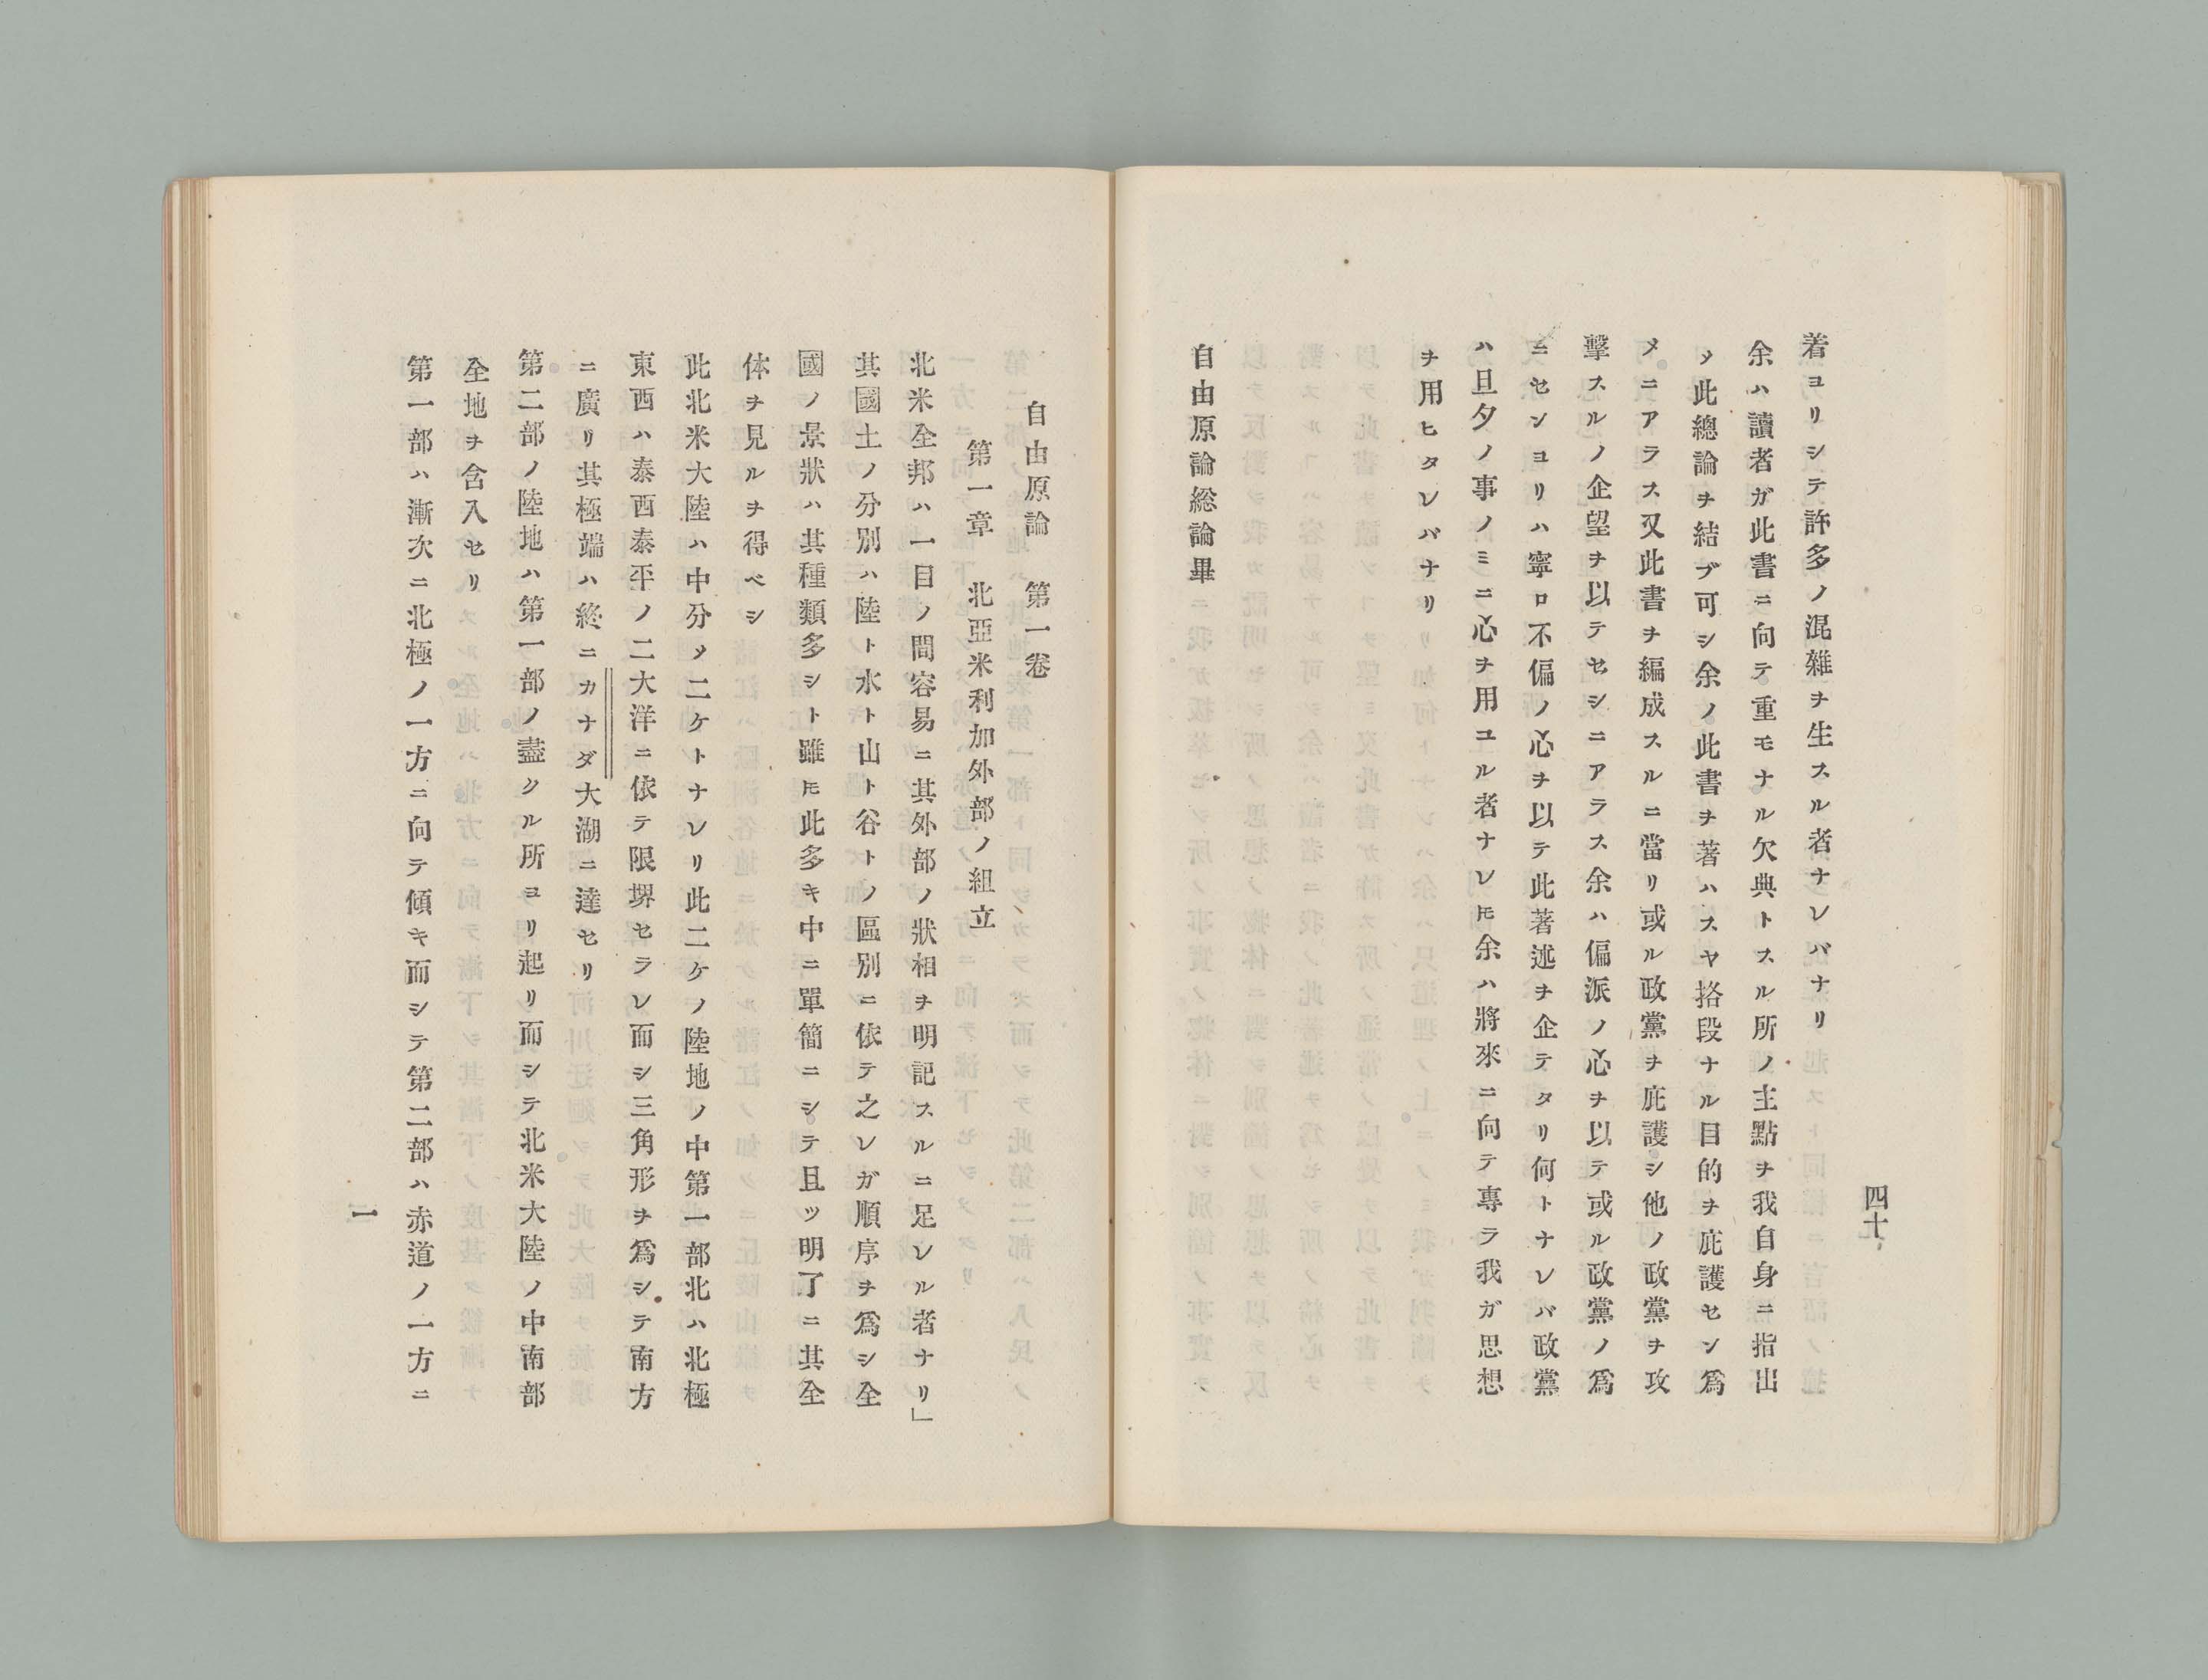 四十
着ヨリシテ許多ノ混雜ヲ生スル者ナレバナリ
余ハ讀者ガ此書ニ向テ重モナル欠典トスル所ノ主點ヲ我自身ニ指出
〆此總論ヲ結ブ可シ余ノ此書ヲ著ハスヤ挌段ナル目的ヲ庇護セン爲
メニアラス又此書ヲ編成スルニ當リ或ル政黨ヲ庇護シ他ノ政黨ヲ攻
擊スルノ企望ヲ以テセシニアラス余ハ偏派ノ心ヲ以テ或ル政黨ノ爲
ニセンヨリハ寧ロ不偏ノ心ヲ以テ此著述ヲ企テタリ何トナレバ政黨
ハ旦夕ノ事ノミニ心ヲ用ユル者ナレ𪜈余ハ將來ニ向テ專ラ我ガ思想
ヲ用ヒタレバナリ
自由原論総論畢
自由原論　第一卷
第一章　北亞米利加外部ノ組立
北米全邦ハ一目ノ間容易ニ其外部ノ狀相ヲ明記スルニ足レル者ナリ」
其國土ノ分別ハ陸ト水ト山ト谷トノ區別ニ依テ之レガ順序ヲ爲シ全
國ノ景狀ハ其種類多シト雖𪜈此多キ中ニ單簡ニシテ且ツ明了ニ其全
体ヲ見ルヲ得ベシ
此北米大陸ハ中分〆二ケトナレリ此二ケノ陸地ノ中第一部北ハ北極
東西ハ泰西泰平ノ二大洋ニ依テ限堺セラレ而シ三角形ヲ爲シテ南方
ニ廣リ其極端ハ終ニカナダ大湖ニ達セリ
第二部ノ陸地ハ第一部ノ盡クル所ヨリ起リ而シテ北米大陸ノ中南部
全地ヲ含入セリ
第一部ハ漸次ニ北極ノ一方ニ向テ傾キ而シテ第二部ハ赤道ノ一方ニ
一